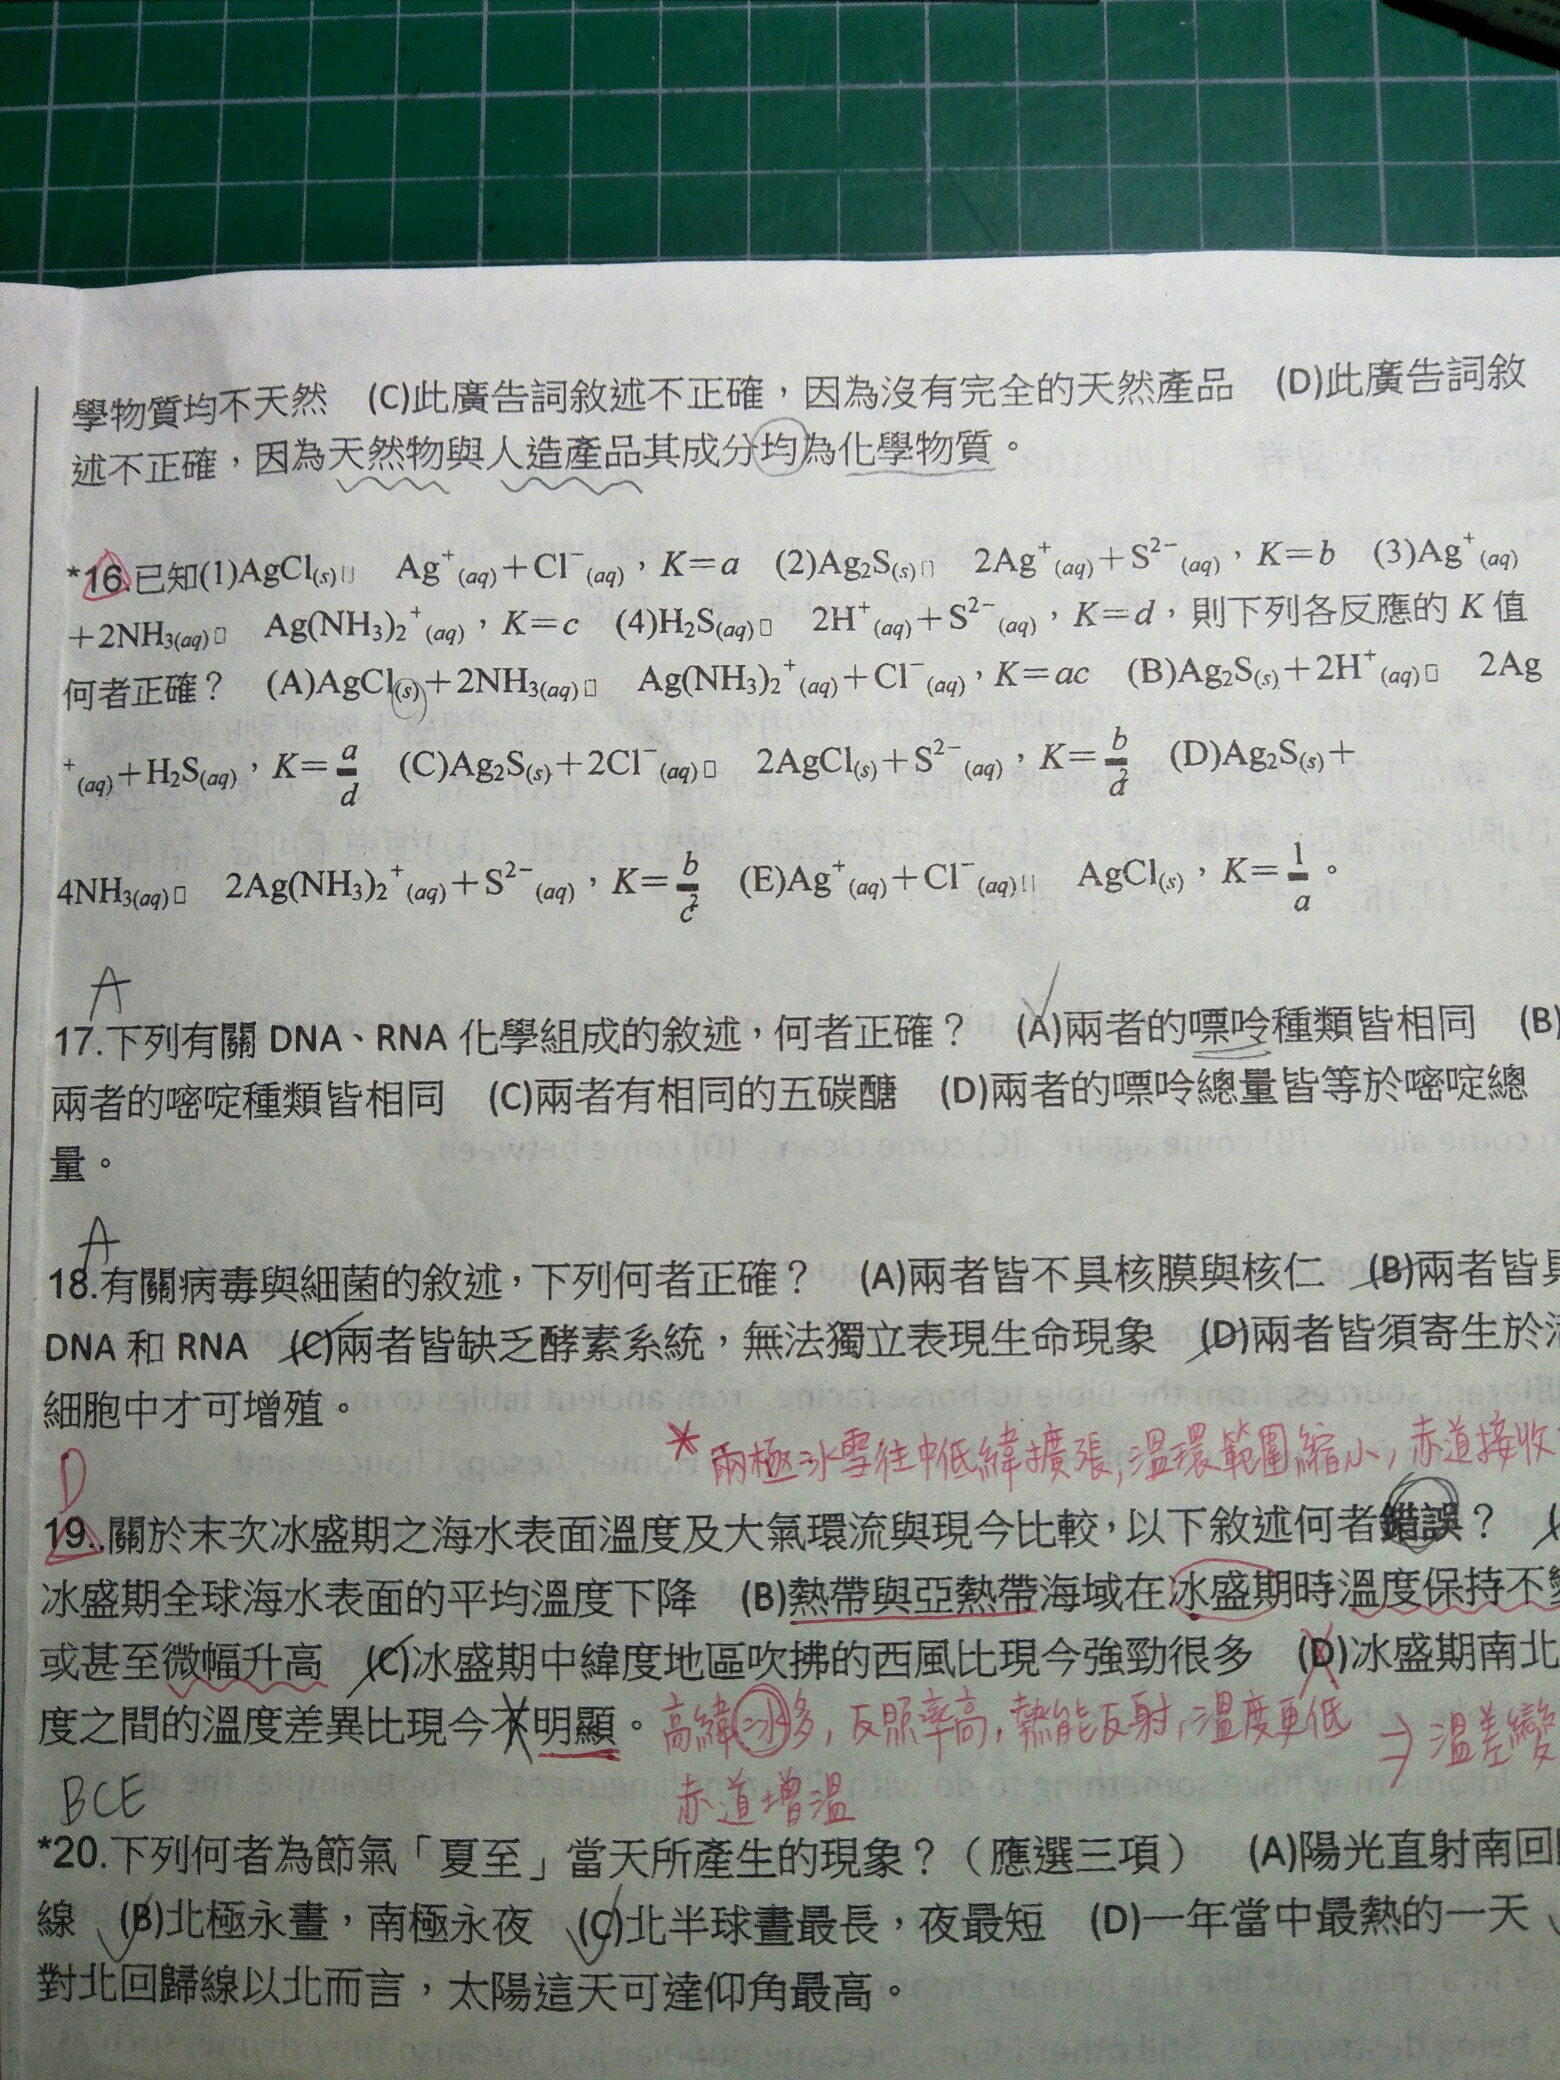 學物質均不天然 (C)此廣告詞敘述不正確，因為沒有完全的天然產品 (D)此廣告詞敘
述不正確，因為天然物與人造產品其成分均為化學物質。
*16.已知(1)AgCl(s)□ Ag⁺(aq)+Cl⁻(aq)，K=a (2)Ag₂S(s)□ 2Ag⁺(aq)+S²⁻(aq)，K=b (3)Ag⁺(aq)
+2NH₃(aq)□ Ag(NH₃)₂⁺(aq)，K=c (4)H₂S(aq)□ 2H⁺(aq)+S²⁻(aq)，K=d，則下列各反應的 K 值
何者正確？ (A)AgCl(s)+2NH₃(aq)□ Ag(NH₃)₂⁺(aq)+Cl⁻(aq)，K=ac (B)Ag₂S(s)+2H⁺(aq)□ 2Ag
⁺(aq)+H₂S(aq)，K=a/d (C)Ag₂S(s)+2Cl⁻(aq)□ 2AgCl(s)+S²⁻(aq)，K=b/a² (D)Ag₂S(s)+
4NH₃(aq)□ 2Ag(NH₃)₂⁺(aq)+S²⁻(aq)，K=b/c² (E)Ag⁺(aq)+Cl⁻(aq)□ AgCl(s)，K=1/a。
A
17.下列有關 DNA、RNA 化學組成的敘述，何者正確？ (A)兩者的嘌呤種類皆相同 (B)
兩者的嘧啶種類皆相同 (C)兩者有相同的五碳醣 (D)兩者的嘌呤總量皆等於嘧啶總
量。
A
18.有關病毒與細菌的敘述，下列何者正確？ (A)兩者皆不具核膜與核仁 (B)兩者皆具
DNA 和 RNA (C)兩者皆缺乏酵素系統，無法獨立表現生命現象 (D)兩者皆須寄生於活
細胞中才可增殖。
* 兩極冰雪往中低緯擴張，溫環範圍縮小，赤道接收
D
19.關於末次冰盛期之海水表面溫度及大氣環流與現今比較，以下敘述何者錯誤？
冰盛期全球海水表面的平均溫度下降 (B)熱帶與亞熱帶海域在冰盛期時溫度保持不變
或甚至微幅升高 (C)冰盛期中緯度地區吹拂的西風比現今強勁很多 (D)冰盛期南北
度之間的溫度差異比現今不明顯。 高緯冰多，反照率高，熱能反射，溫度更低 ⇒ 溫差變
赤道增溫
BCE
*20.下列何者為節氣「夏至」當天所產生的現象？（應選三項） (A)陽光直射南回歸
線 (B)北極永晝，南極永夜 (C)北半球晝最長，夜最短 (D)一年當中最熱的一天
對北回歸線以北而言，太陽這天可達仰角最高。